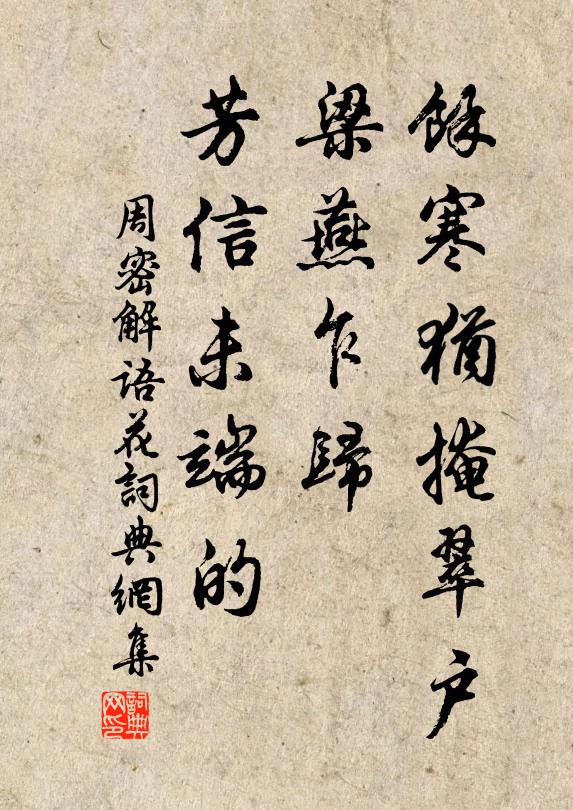 餘寒猶掩翠戶
梁燕乍歸
芳信未端的
周密解語花詞典網集
詞典网印